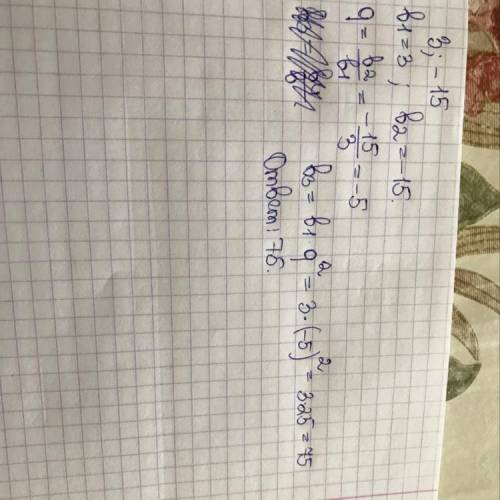 3; -15
b1 = 3 ; b2 = -15.
q = b2/b1 = -15/3 = -5
b3 = b1 q² = 3·(-5)² = 3·25 = 75
Ответ: 75.